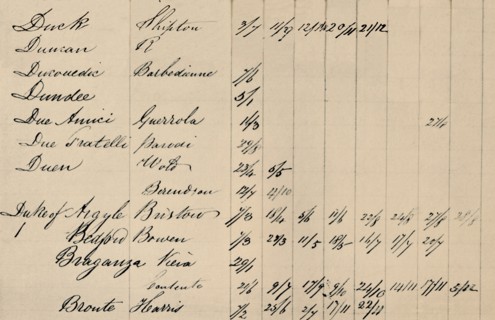 Duck Shipton 3/7 11/9 12/12 20/11 21/12
Duncan R
Ducouedic Barbedienne 7/6
Dundee 3/1
Due Amici Guerrola 11/3 27/4
Due Fratelli Parodi 29/5
Duen Wold 23/4 5/5
Berendson 12/7 12/10
Duke of Argyle Bristow 7/3 18/4 3/6 11/6 22/8 24/8 27/8 28/8
Bedford Bowen 1/3 23/3 11/5 18/5 16/7 17/7 20/7
Braganza Vieia 29/1
21/6 9/7 17/9 24/10 14/11 17/11 3/12
Bronte Harris 7/2 25/6 2/7 7/11 22/11